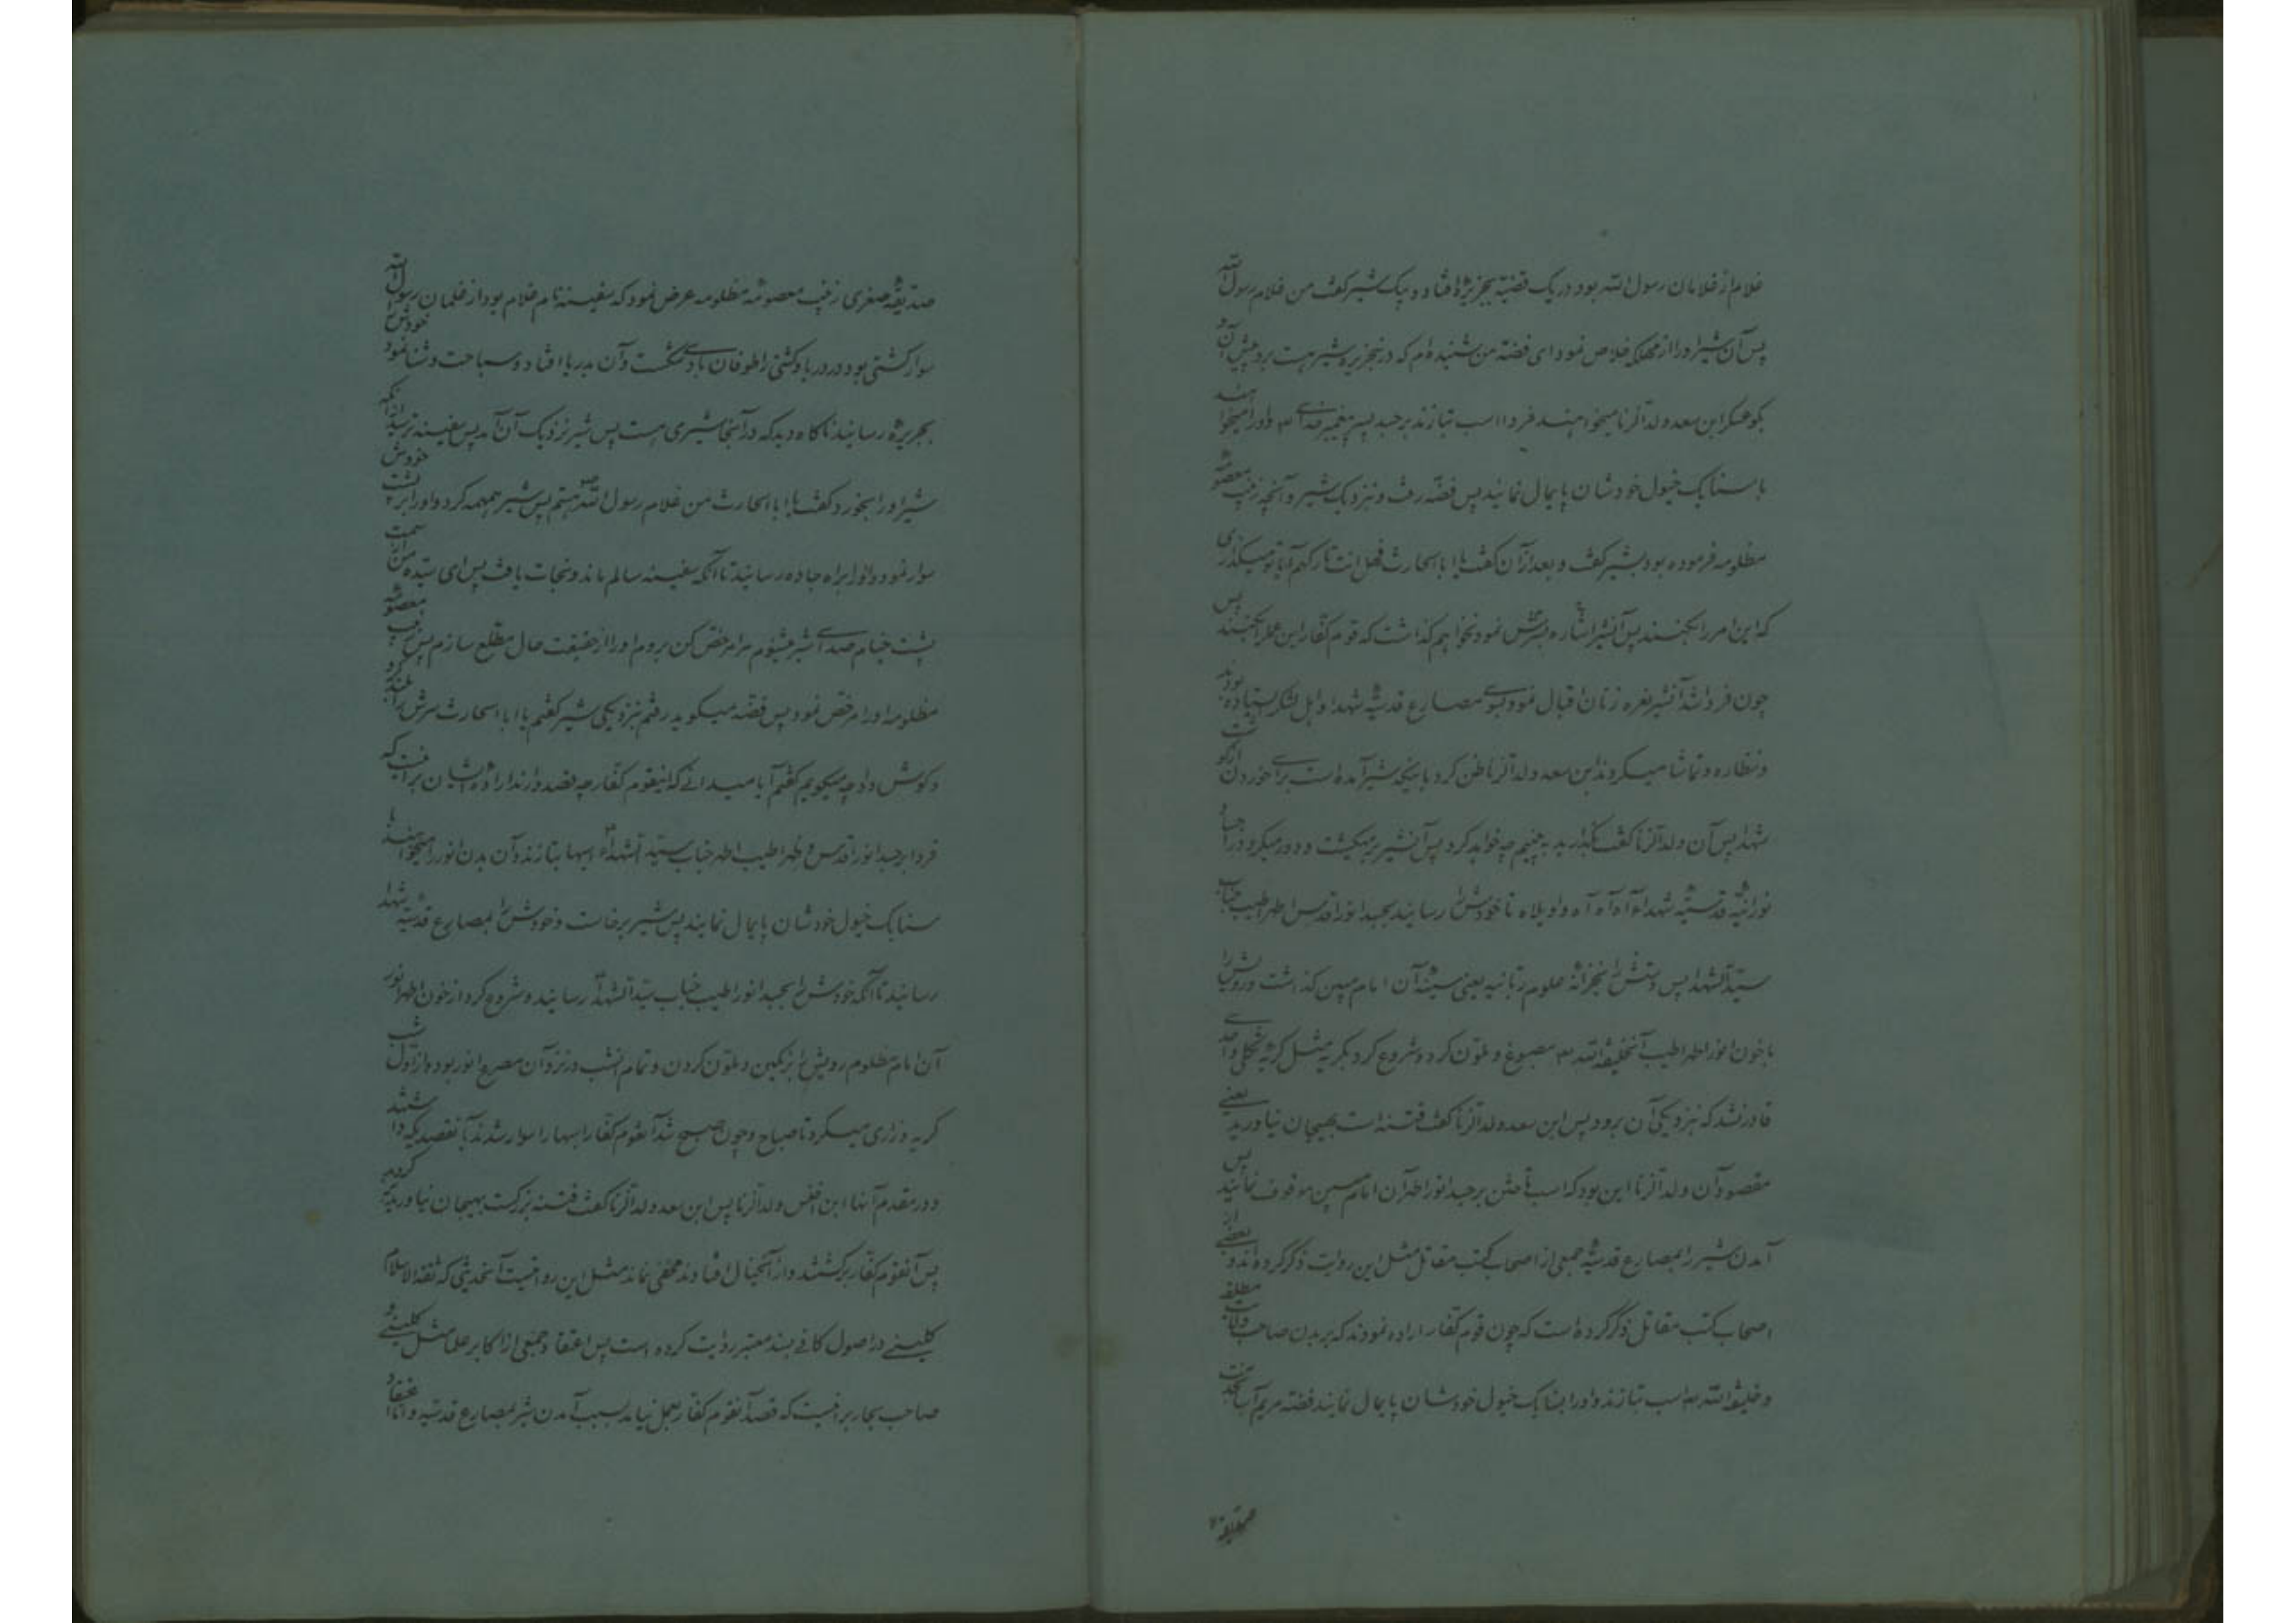 غلام از غلامان رسول الله بود در یک قضیه بجزیرهٔ افتاد و بیک شیر گفت من غلام رسول الله
پس آن شیر او را از مهلکه خلاص نمود ای فضه من شنیده‌ام که در اینجزیره شیر هست برو پیش آن و
بگو عسکر ابن سعد ولدالزنا میخواهند فردا اسب بتازند بر جسد پسر پیغمبر خدای و او را میخواهند
با سنابک خیول خودشان پایمال نمایند پس فضّه رفت و نزدیک شیر و آنچه زینب معصومهٔ
مظلومه فرموده بود بشیر گفت و بعد از آن گفت یا ابا الحارث فهل انت تارکهم آیا تو میگذاری
که این امر را بکنند پس آنشیر اشاره بسرش نمود نخواهم گذاشت که قوم کفّار این عمل را بکنند پس
چون فردا شد آنشیر نعره زنان اقبال نمود بسوی مصارع قدسیّهٔ شهدا و اهل لشکر ایستاده بودند
و نظاره و تماشا میکردند ابن سعد ولدالزنا ظن کرد باینکه شیر آمده است برای خوردن از گوشت
شهدا پس آن ولدالزنا گفت بگذارید به بینیم چه خواهد کرد پس آنشیر برمیگشت و دور میکرد در اجساد
نورانیّهٔ قدسیّهٔ شهداء آه آه آه واویلاه تا خودش را رسانید بجسد انور اقدس اطهر اطیب جناب
سیّدالشهدا پس دستش را بخزانهٔ علوم ربّانیه یعنی سینهٔ آن امام مبین گذاشت و رویش را
با خون انور اطهر اطیب آنخلیفةالله مصبوغ و ملوّن کرد و شروع کرد بگریه مثل گریهٔ ثکلی واحدی
قادر نشد که بنزدیکی آن برود پس ابن سعد ولدالزنا گفت فتنه است بهیجان نیاورید یعنی
مقصود آن ولدالزنا این بود که اسب تاختن بر جسد انور اطهر آن امام مبین موقوف نمائید پس
آمدن شیر را بمصارع قدسیّه جمعی از اصحاب کتب مقاتل مثل این روایت ذکر کرده‌اند و بعضی از
اصحاب کتب مقاتل ذکر کرده است که چون قوم کفّار اراده نمودند که بر بدن صاحب ولایت مطلقه
و خلیفةالله اسب بتازند و او را بسنابک خیول خودشان پایمال نمایند فضّه مریم آسا بخدمت
صدیقهٔ
صدیقهٔ صغری زینب معصومهٔ مظلومه عرض نمود که سفینه نام غلام بود از غلمان رسول الله
سوار کشتی بود در دریا و کشتی را طوفان بادی شکست و آن بدریا افتاد و سباحت و شنا نمود خودش را
بجزیرهٔ رسانید ناگاه دید که در آنجا شیری هست پس شیر نزدیک آن آمد پس سفینه ترسید از آنکه
شیر او را بخورد گفت یا ابا الحارث من غلام رسول الله هستم پس شیر همهمه کرد و او را بر پشت خودش
سوار نمود و او را براه جاده رسانید تا آنکه سفینه سالم ماند و نجات یافت پس ای سیّدهٔ من از سمت
پشت خیام صدای شیر میشنوم مرا مرخّص کن بروم او را از حقیقت حال مطّلع سازم پس زینب معصومهٔ
مظلومه او را مرخّص نمود پس فضّه میگوید رفتم بنزدیکی شیر گفتم یا ابا الحارث سرش را بلند کرد
و گوش داد چه میگویم گفتم آیا میدانی که اینقوم کفّار چه قصد دارند ارادهٔ ایشان بر اینست که
فردا بر جسد انور اقدس و ظهر اطیب اطهر جناب سیّدالشهداء اسبها بتازند و آن بدن انور را میخواهند با
سنابک خیول خودشان پایمال نمایند پس شیر برخاست و خودش را بمصارع قدسیّهٔ شهدا
رسانید تا آنکه خودش را بجسد انور اطیب جناب سیّدالشهدا رسانید و شروع کرد از خون اطهر انور
آن امام مظلوم رویش را رنگین و ملوّن کردن و تمام آنشب در نزد آن مصرع انور بود و از اوّل شب
گریه و زاری میکرد تا صباح و چون صبح شد آنقوم کفّار اسبها را سوار شدند بآنقصدیکه داشتند
و در مقدم آنها ابن اخنس ولدالزنا پس ابن سعد ولدالزنا گفت فتنه بزرگست بهیجان نیاورید
پس آنقوم کفّار برگشتند و از آنخیال افتادند مخفی نماند مثل این روایتست آنحدیثی که ثقةالاسلام
کلینی در اصول کافی بسند معتبر روایت کرده است پس اعتقاد جمعی از اکابر علما مثل کلینی و
صاحب بحار بر اینست که قصد آنقوم کفّار بعمل نیامد بسبب آمدن شیر بمصارع قدسیّه و امّا اعتقاد